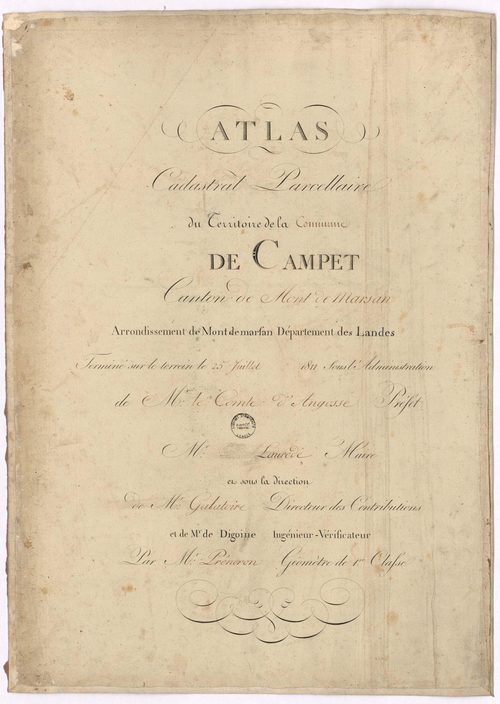 ATLAS
Cadastral Parcellaire
du Territoire de la Commune
DE CAMPET
Canton de Mont de Marsan
Arrondissement de Mont de marsan Département des Landes
Terminé sur le terrein le 25 Juillet 1811 Sous l'Administration
de Mr. le Comte d'Angosse Préfet
Mr. Maire
et sous la direction
de Mr. Galatoire Directeur des Contributions
et de Mr. de Digoine Ingénieur-Vérificateur
Par Mr. Géomètre de 1re Classe